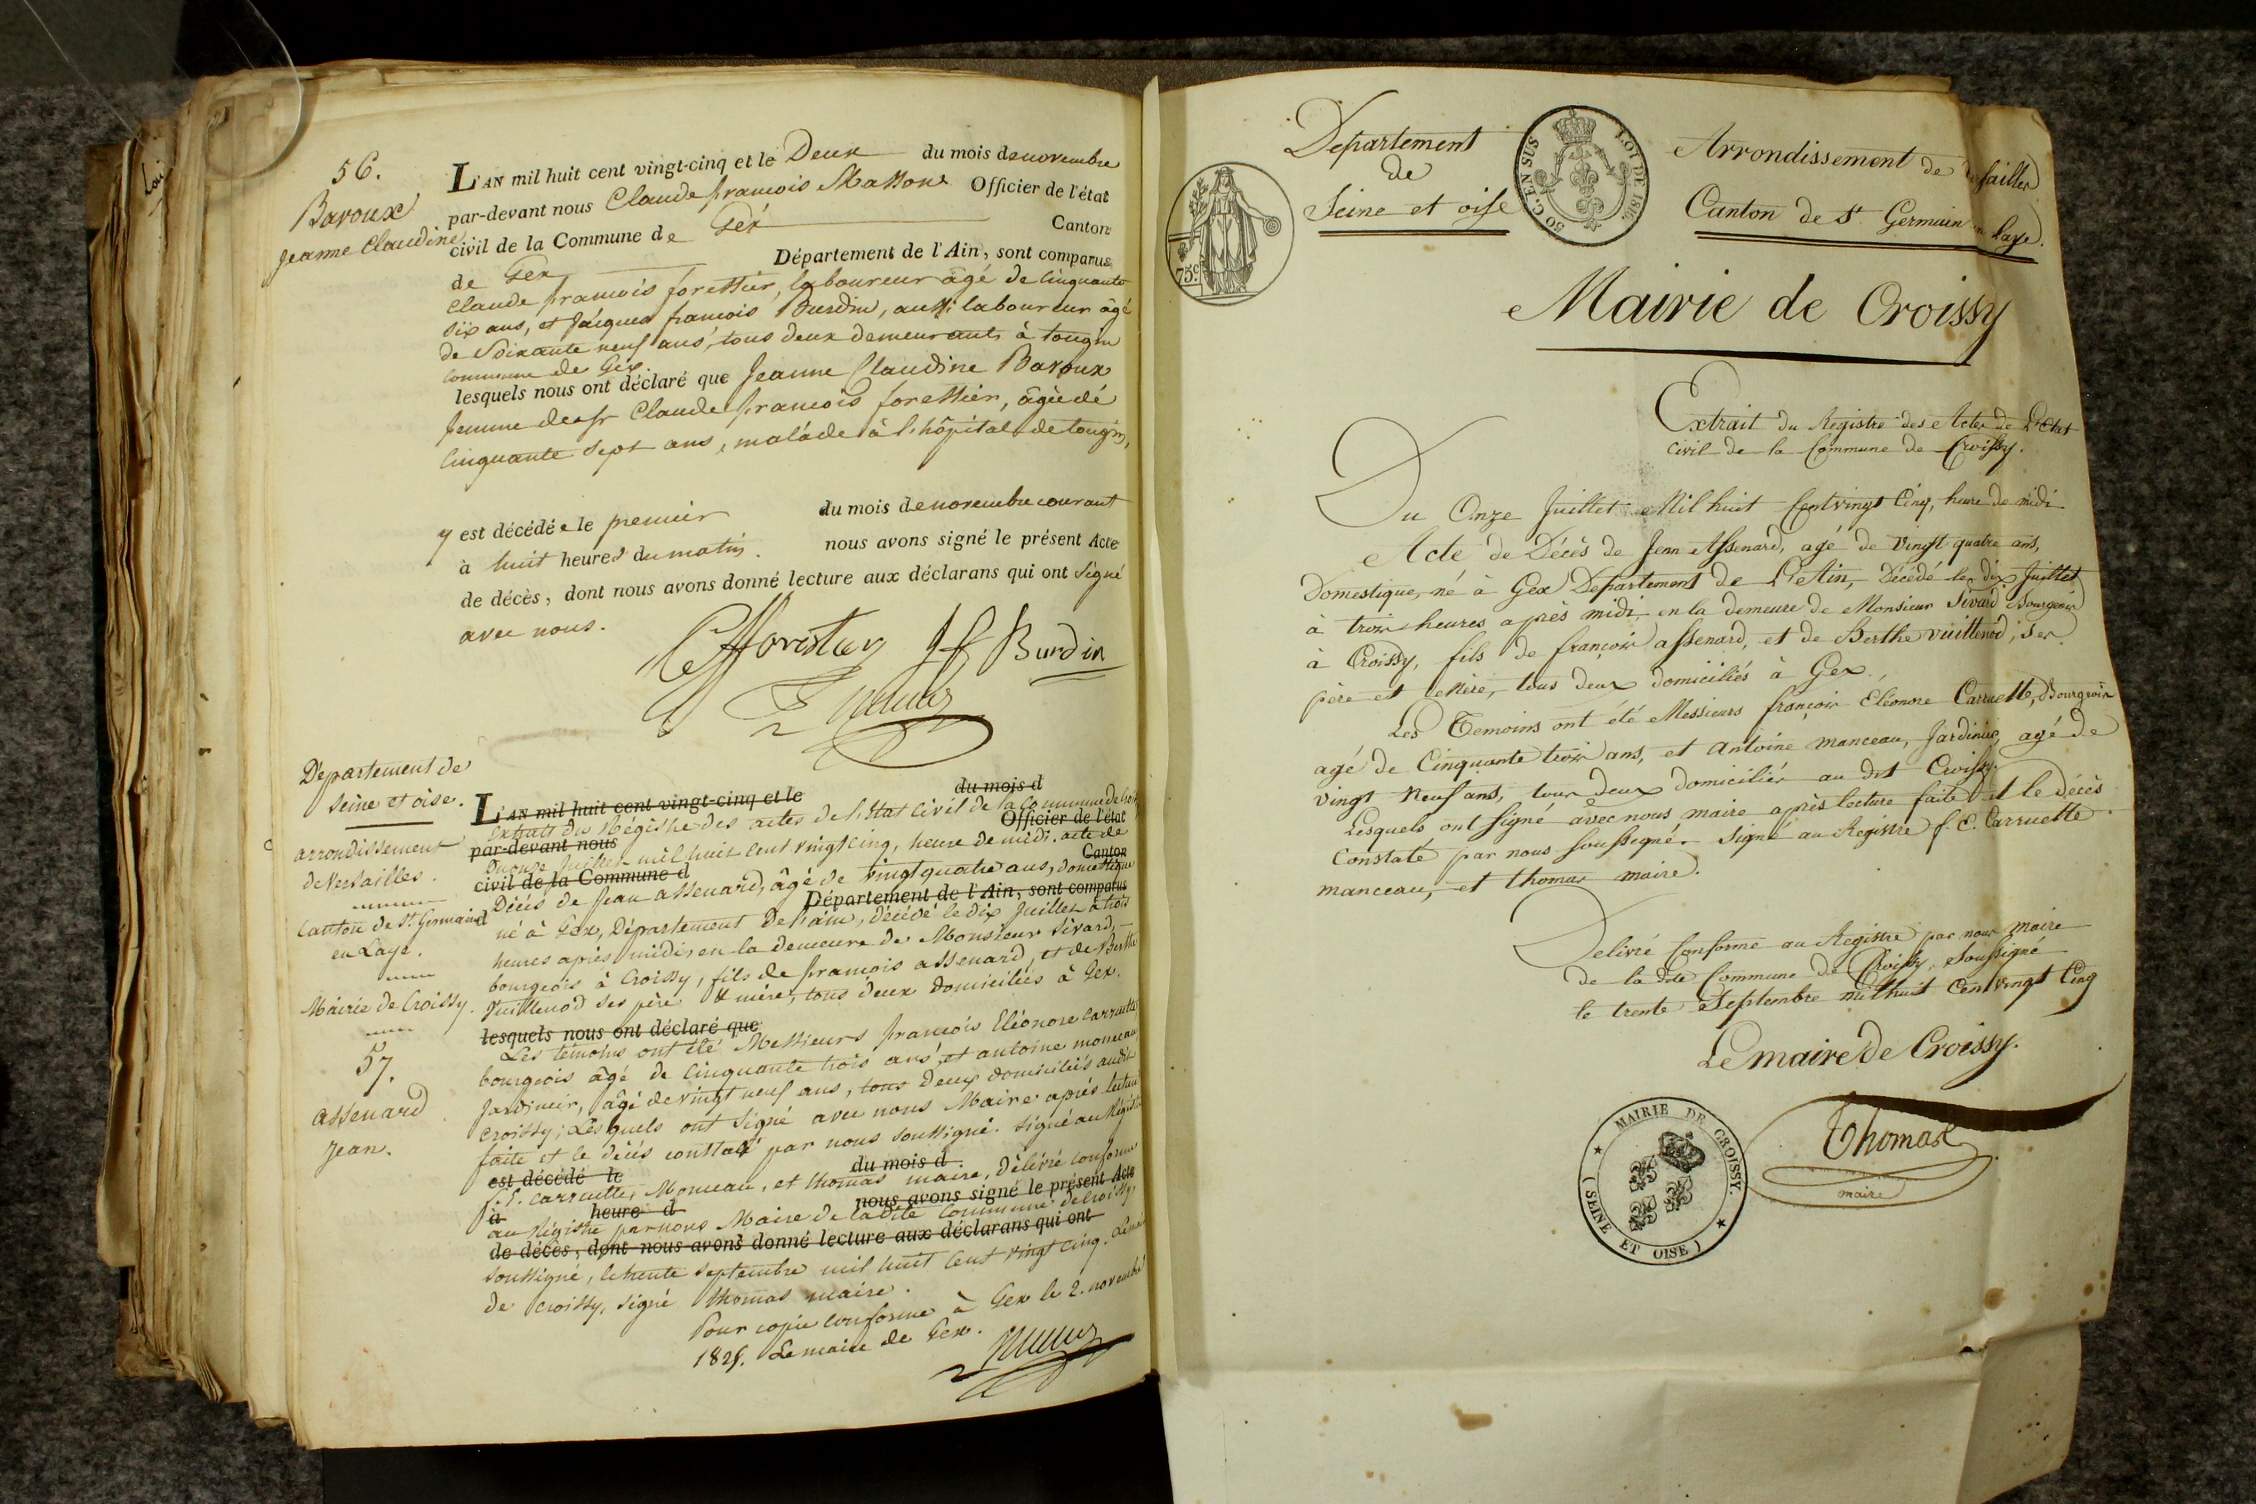 56.
Baroux
Jeanne Claudine
L'AN mil huit cent vingt-cinq et le Deux du mois de novembre
par-devant nous Claude françois Masson Officier de l'état
civil de la Commune de Gex Canton
de Gex Département de l'Ain, sont comparus
Claude francois forestier, laboureur âgé de cinquante
six ans, et Jacques francois Burdin, aussi laboureur âgé
de soixante neuf ans, tous deux demeurants à tougin
commune de Gex.
lesquels nous ont déclaré que Jeanne Claudine Baroux
femme de Claude francois forestier, âgée de
cinquante sept ans, malade à l'hôpital de tougin,
y est décédée le premier du mois de novembre courant
à huit heures du matin. nous avons signé le présent Acte
de décès, dont nous avons donné lecture aux déclarans qui ont signé
avec nous.
J f Burdin
Département de
Seine et oise.
arrondissement
de Versailles.
Canton de St. Germain
en Laye.
Mairie de Croissy.
57.
assenard
Jean.
L'AN mil huit cent vingt-cinq et le du mois d
Extrait du Régistre des actes de l'état Civil de la Commune de Croissy
par-devant nous Officier de l'état
Du onze Juillet mil huit cent vingt cinq, heure de midi. acte de
civil de la Commune d Canton
Décès de Jean assenard, âgé de vingt quatre ans, domestique
d Département de l'Ain, sont comparus
né à Gex, Département de l'ain, décédé le dix Juillet à trois
heures après midi, en la demeure de Monsieur Sivard,
bourgeois à Croissy, fils de francois assenard, et de Berthe
Vuillenod ses père & mère, tous deux domiciliés à Gex.
lesquels nous ont déclaré que
Les témoins ont été Messieurs francois Eléonore Carruette,
bourgeois âgé de cinquante trois ans, et antoine monceau
Jardinier, âgé de vingt neuf ans, tous deux domiciliés audit
croissy; Lesquels ont signé avec nous Maire après lecture
faite et le décès constaté par nous soussigné. signé au Régistre
est décédé le du mois d
f. E. Carruette, Monceau, et thomas maire, Délivré conforme
à heure d nous avons signé le présent Acte
au Régistre par nous Maire de ladite Commune de Croissy,
de décès, dont nous avons donné lecture aux déclarans qui ont
soussigné, le trente septembre mil huit cent vingt cinq. Le maire
de croissy, signé thomas maire.
Pour copie conforme à Gex le 2. novembre
1825. Le maire de Gex.
Departement
de
Seine et oise
75c
50 C. EN SUS
LOI DE 1816
Arrondissement de Versailles
Canton de St Germain en Laye.
Mairie de Croissy
Extrait du Registre des Actes de L'Etat
Civil de la Commune de Croissy.
Du Onze Juillet Mil huit Cent vingt Cinq, heure de midi
Acte de Décès de Jean Assenard, agé de vingt quatre ans,
Domestique, né à Gex Departement de L'Ain, Décédé le dix Juillet
à trois heures après midi en la demeure de Monsieur Sivard Bourgeois
à Croissy, fils de françois assenard, et de Berthe vuillenod, ses
père et Mère, tous deux domiciliés à Gex.
Les Temoins ont été Messieurs françois Eléonore Carruette, Bourgeois
agé de Cinquante trois ans, et Antoine manceau, Jardinier, agé de
vingt Neuf ans, tous deux domiciliés au dit Croissy.
Lesquels ont signé avec nous maire après lecture faite et le décès
Constaté par nous soussigné. Signé au Registre f. E. Carruette
manceau, et thomas maire.
Delivré Conforme au Registre par nous maire
de la dite Commune de Croissy, Soussigné
le trente Septembre mil huit Cent vingt Cinq
Le maire de Croissy.
Thomas
maire
MAIRIE DE CROISSY.
(SEINE ET OISE)